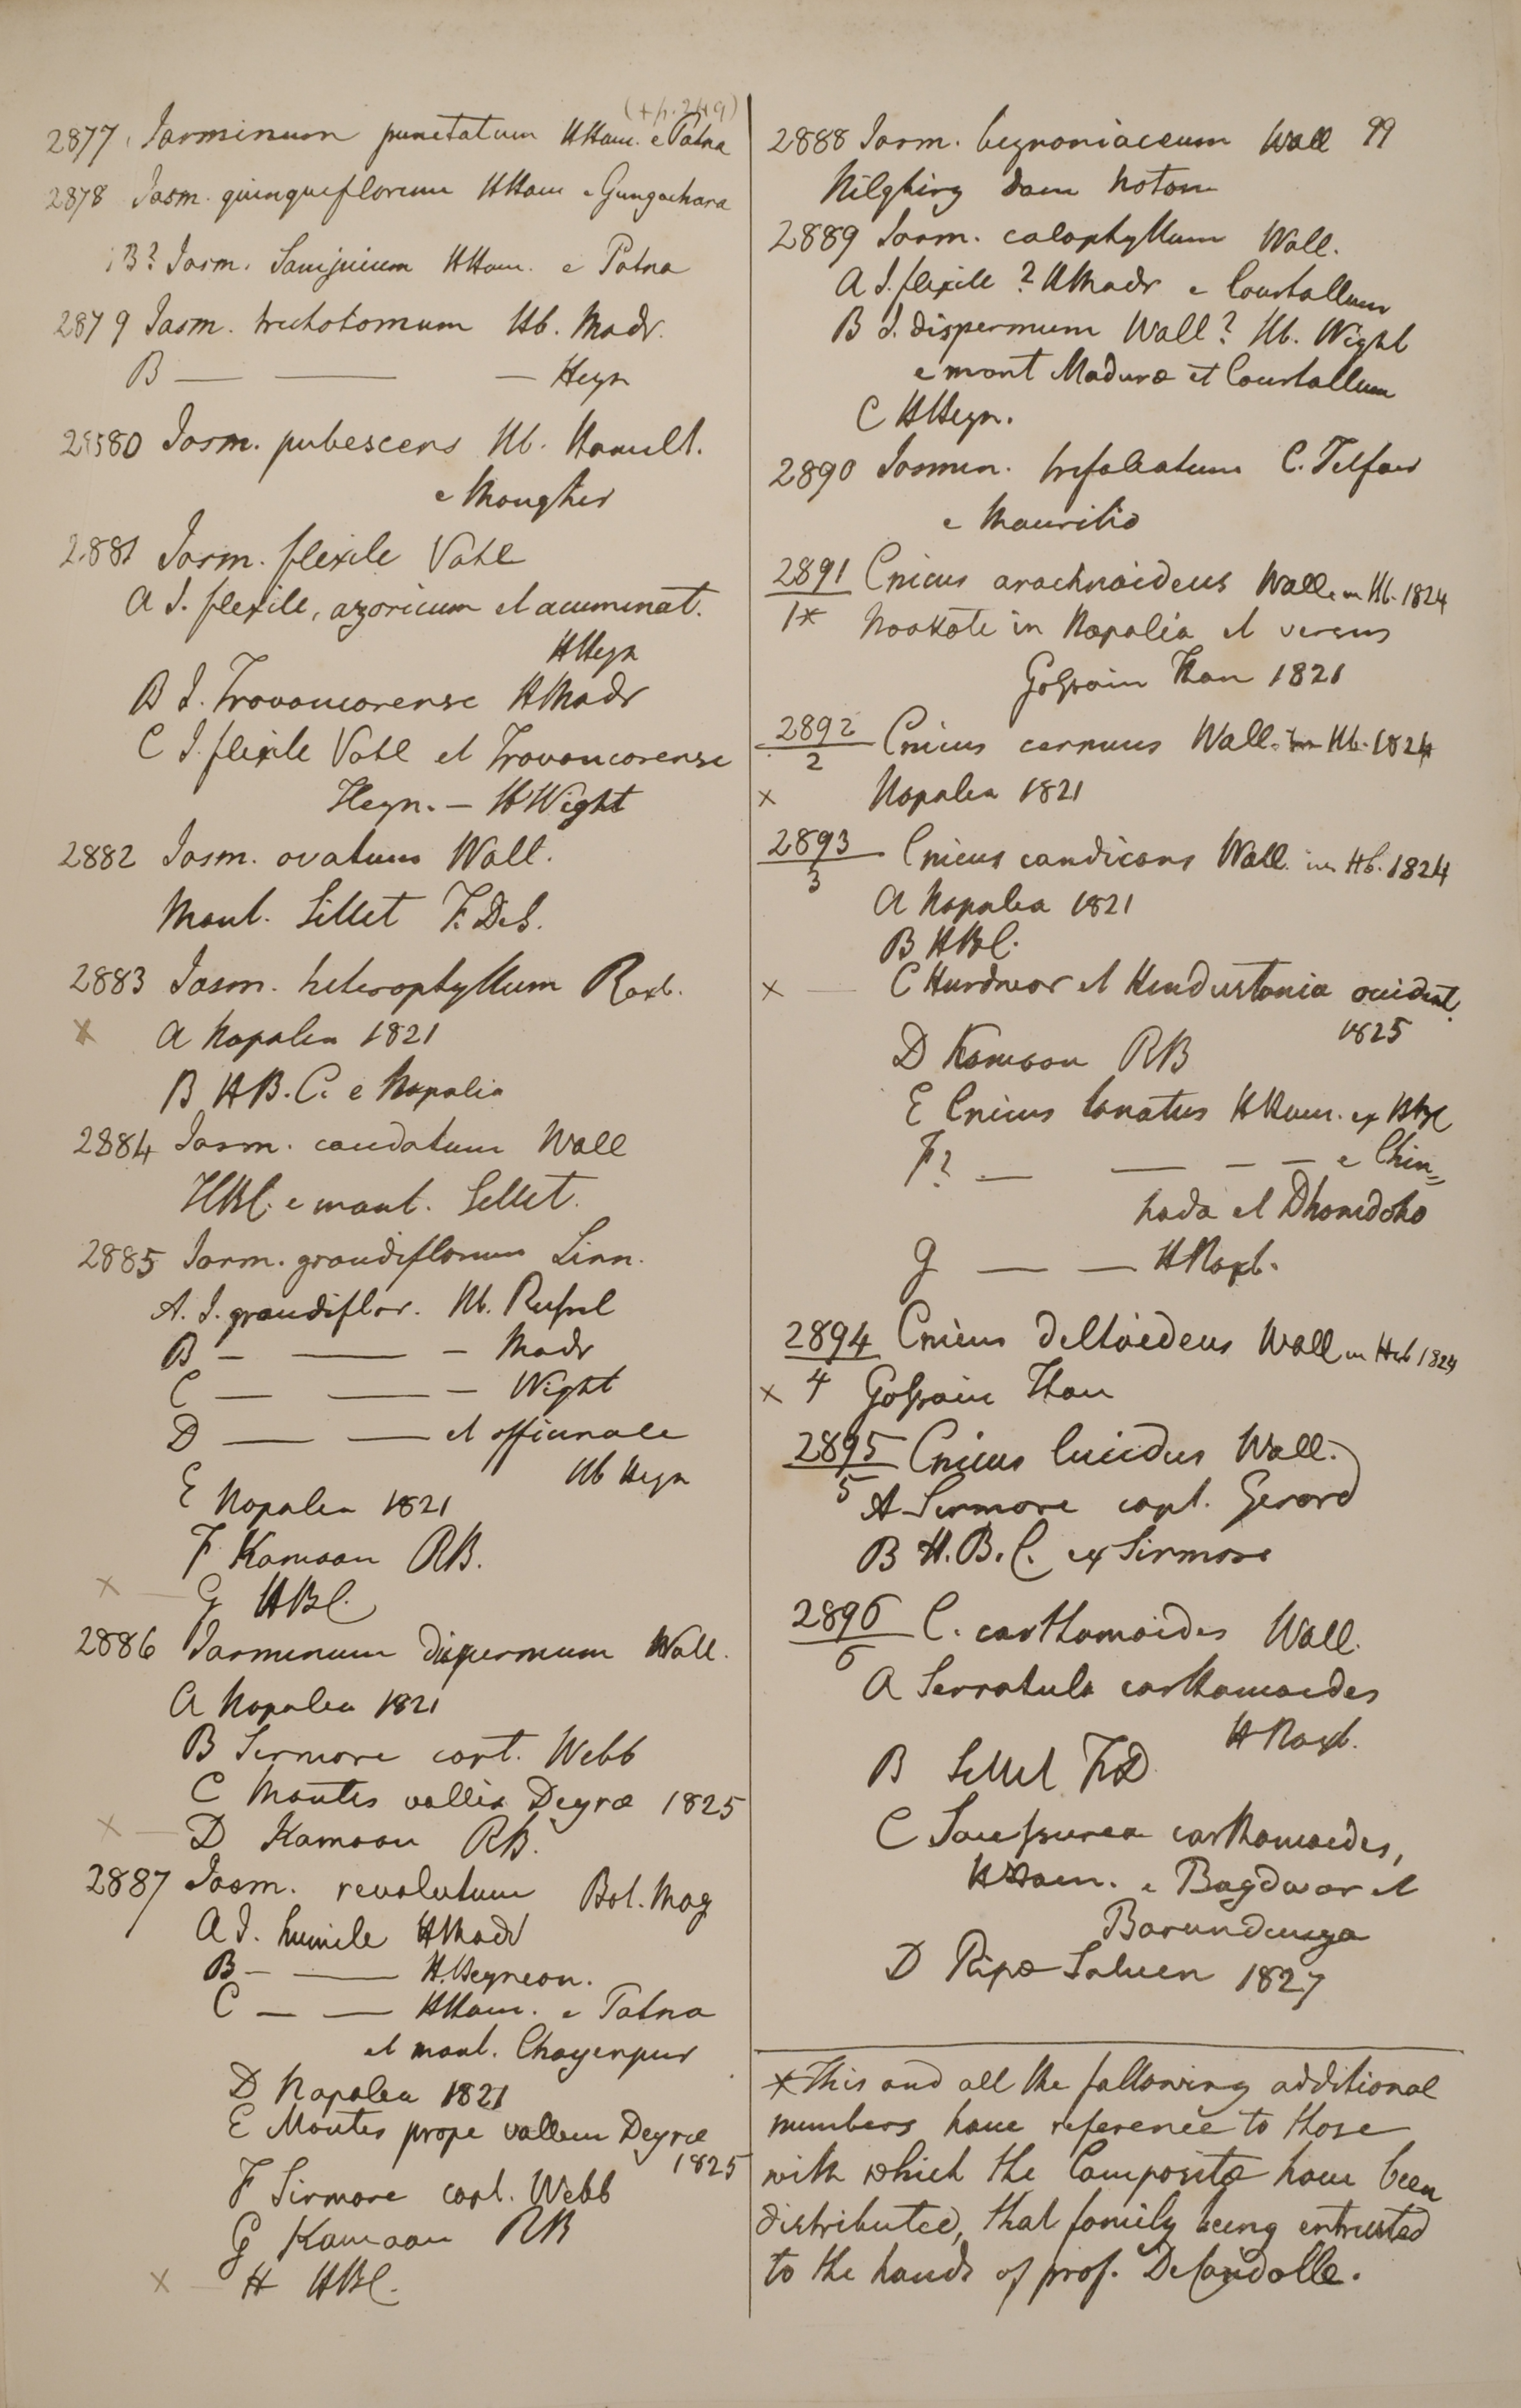 (+ p. 249)
2877 Jasminum punctatum HHam. e Patna
2878 Jasm. quinqueflorum HHam e Gungachara
B? Jasm. Sanjuium HHam. e Patna
2879 Jasm. trichotomum Hb. Madr.
B — — — Heyn
2880 Jasm. pubescens Hb. Hamilt.
e Mongher
2881 Jasm. flexile Vahl
A J. flexile, azoricum et acuminat.
HHeyn
B J. Travancorense HMadr
C J. flexile Vahl et Travancorense
Heyn. — HWight
2882 Jasm. ovatum Wall.
Mont. Sillet F. DeS.
2883 Jasm. heterophyllum Roxb.
x A Napalia 1821
B HB.C. e Napalia
2884 Jasm. caudatum Wall
HBC. e mont. Sillet.
2885 Jasm. grandiflorum Linn.
A. J. grandiflor. Hb. Russel
B — — — Madr
C — — — Wight
D — — et officinale
Hb Heyn
E Napalia 1821
F Kamaon RB.
x — G HBC.
2886 Jasminum dispermum Wall.
A Napalia 1821
B Sirmore capt. Webb
C Montes vallis Deyrae 1825
x — D Kamaon RB.
2887 Jasm. revolutum Bot. Mag
A J. humile HMadr
B — — H. Heynean.
C — — HHam. e Patna
et mont. Chayenpur
D Napalia 1821
E Montes prope vallem Deyrae
1825
F Sirmore capt. Webb
G Kamaon RB
x — H HBC.
2888 Jasm. bignoniaceum Wall 99
Nilghiry Dom Noton
2889 Jasm. calophyllum Wall.
A J. flexile? HMadr e Courtallum
B J. dispermum Wall? Hb. Wight
e mont Madurae et Courtallum
C HHeyn.
2890 Jasmin. trifoliatum C. Telfair
e Mauritio
2891 Cnicus arachnoideus Wall. in Hb. 1824
1* Noakote in Napalia et versus
Gossain Than 1821
2892 Cnicus cernuus Wall. in Hb. 1824
2
x Napalia 1821
2893 Cnicus candicans Wall. in Hb. 1824
3
A Napalia 1821
B HBC.
x — C Hurdwar et Hindustania occident.
1825
D Kamaon RB
E Cnicus lanatus HHam. ex HBC
F? — — — — e Chin=
hada et Dhomdoho
G — — HRoxb.
2894 Cnicus deltoideus Wall in Herb 1824
x 4 Gossain Than
2895 Cnicus lucidus Wall.
5 A Sirmore capt. Gerard
B H.B.C. ex Sirmore
2896 C. carthamoides Wall.
6
A Serratula carthamoides
HRoxb.
B Sillet FD
C Saussurea carthamoides,
HHam. e Bagdwar et
Barunduuya
D Ripae Saluen 1827
* This and all the following additional
numbers have reference to those
with which the Compositae have been
distributed, that family being entrusted
to the hands of prof. DeCandolle.